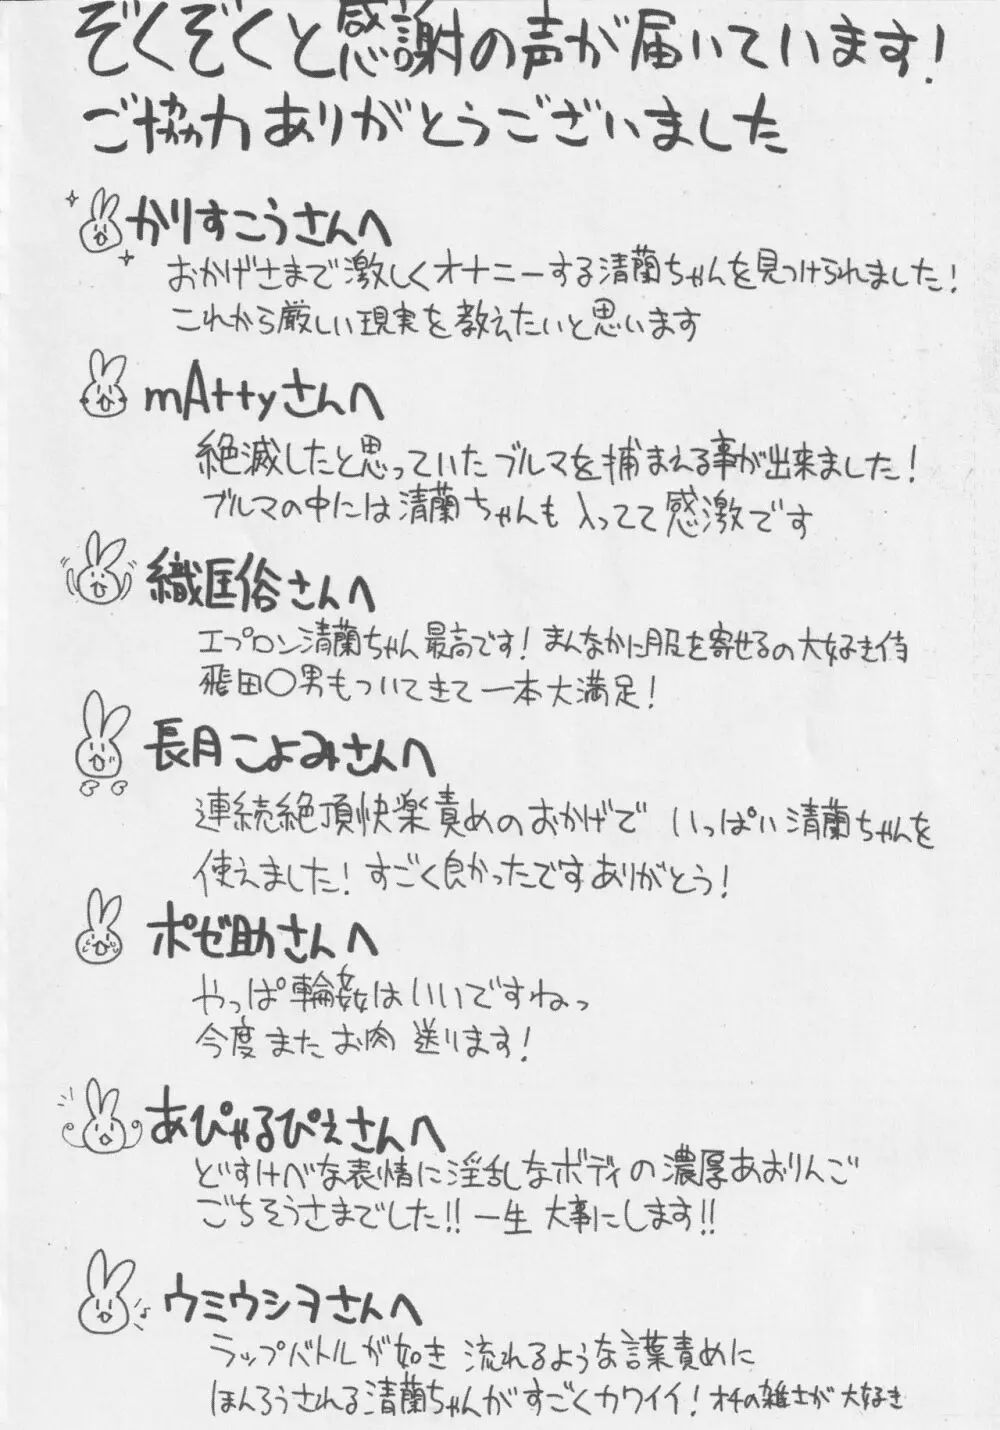 ぞくぞくと感謝の声が届いています!
ご協力ありがとうございました
かりすこうさんへ
おかげさまで激しくオナニーする清蘭ちゃんを見つけられました!
これから厳しい現実を教えたいと思います
mAttyさんへ
絶滅したと思っていたブルマを捕まえる事が出来ました!
ブルマの中には清蘭ちゃんも入ってて感激です
織匡俗さんへ
エプロン清蘭ちゃん最高です! まんなかに服を寄せるの大好き侍
飛田〇男もついてきて一本大満足!
長月こよみさんへ
連続絶頂快楽責めのおかげで いっぱい清蘭ちゃんを
使えました! すごく良かったですありがとう!
ポゼ助さんへ
やっぱ輪姦はいいですねっ
今度またお肉送ります!
あぴゃるぴえさんへ
どすけべな表情に淫乱なボディの濃厚あおりんご
ごちそうさまでした!! 一生大事にします!!
ウミウシヲさんへ
ラップバトルが如き 流れるような言葉責めに
ほんろうされる清蘭ちゃんがすごくカワイイ! オチの雑さが大好き